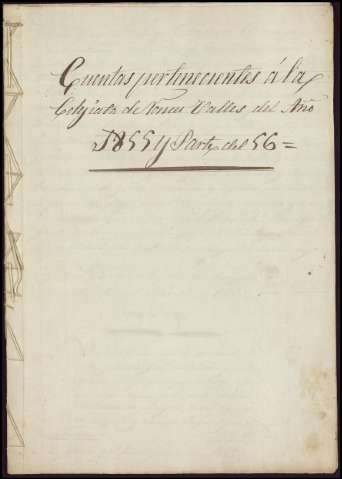 Cuentas pertenecientes á la
Colejiata de Ronces Valles del Año
1855 y Parte del 56 =